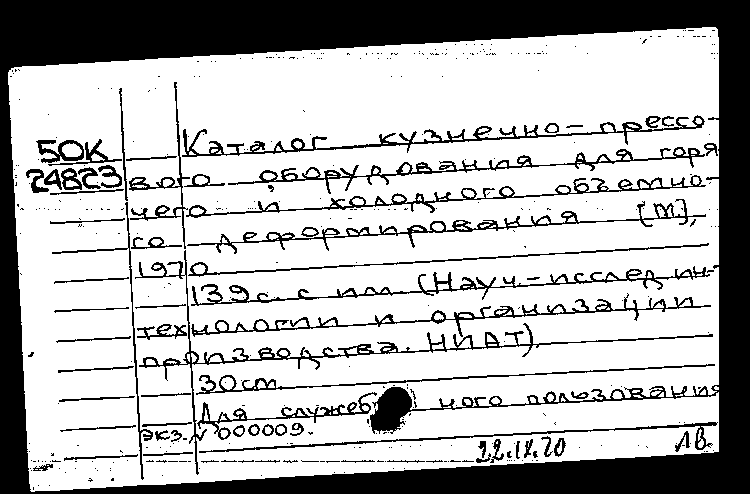 50К
24823
Каталог кузнечно-прессо-
вого оборудования для горя
чего и холодного объемно-
го деформирования [М],
1970
139с. с илл (Науч.-исслед ин-т
технологии и организации
производства. НИАТ)
30см.
Для служебного пользования
экз. № 000009.
22.IX.70 ЛВ.